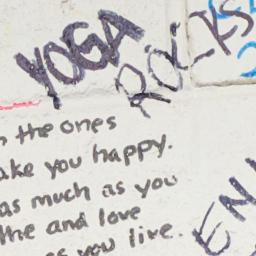 YOGA
ROCKS
the ones
ake you happy.
as much as you
the and love
you live.
EN